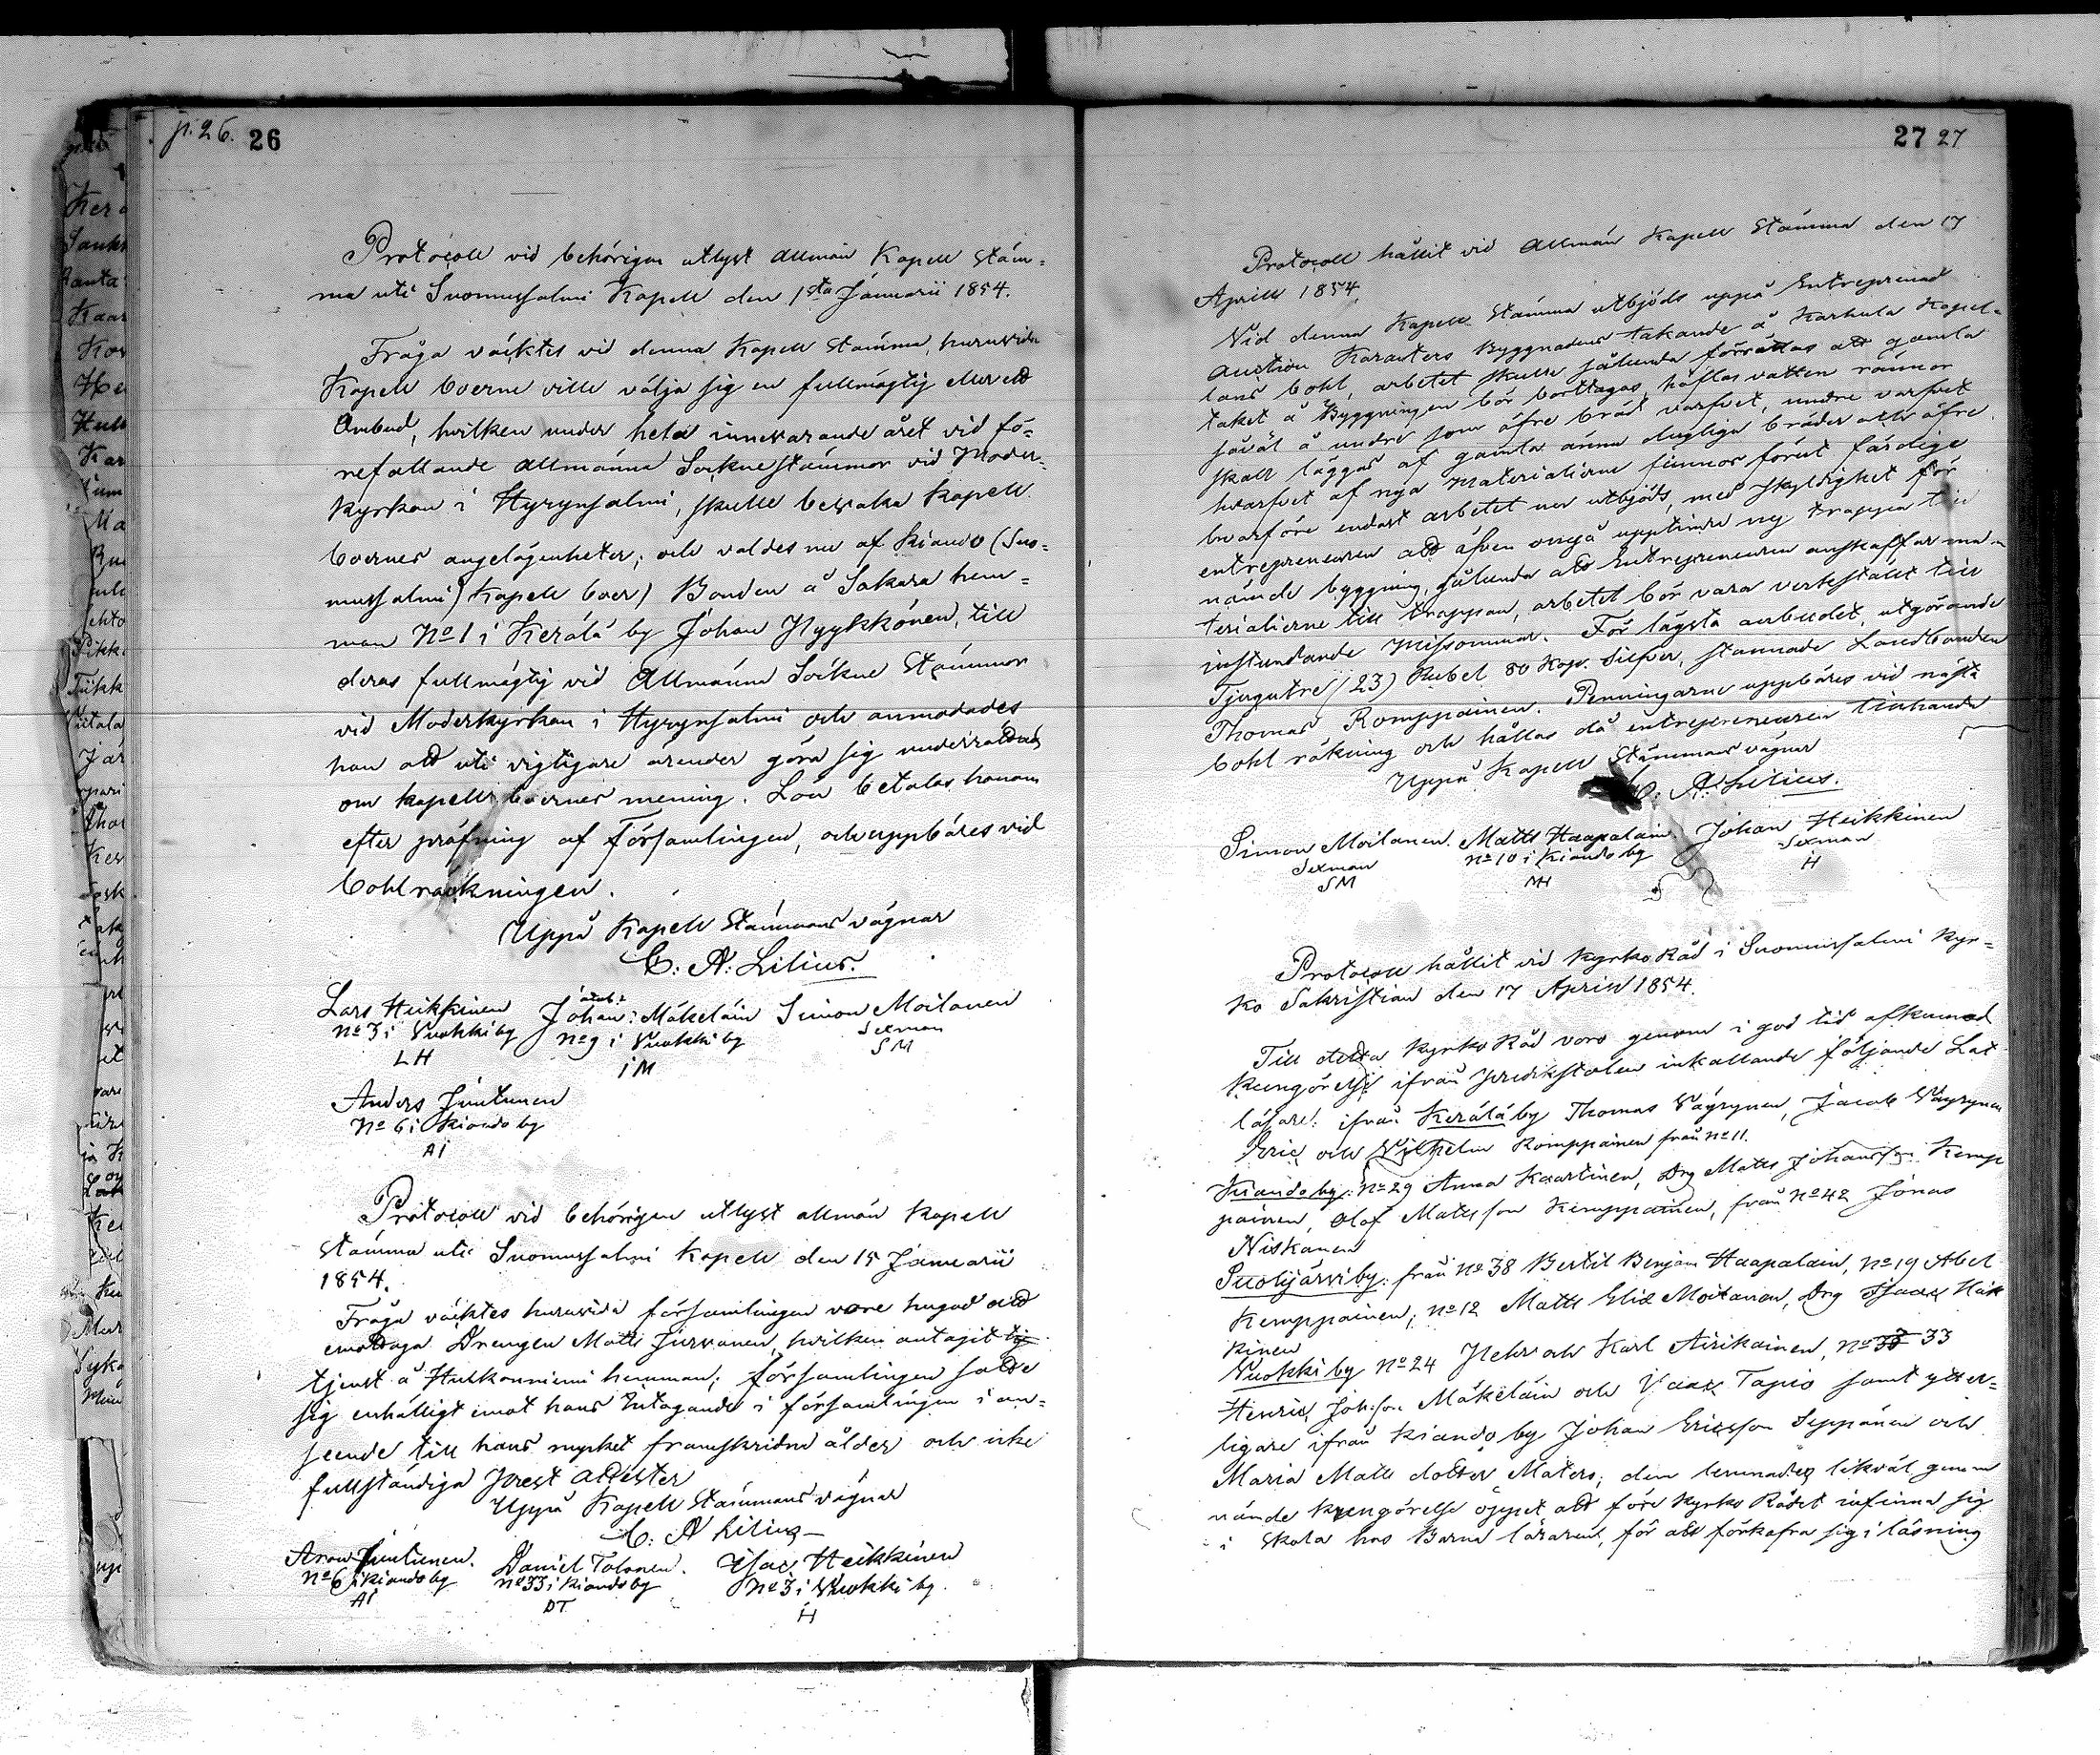 p. 26. 26
Protocoll vid behörigen utlyst allmän Kapell Stäm=
ma uti Suomussalmi Kapell den 1sta Januarii 1854.
Fråga väcktes vid denna Kapell Stämma, huruvida
Kapell boerne ville välja sig en fullmägtig eller ett
Ombud, hvilken under hela innevarande året vid fö=
refallande allmänna Sockne stämmor vid Moder=
kyrkan i Hyrynsalmi, skulle bevaka Kapell
boernes angelägenheter; och valdes nu af Kiando (Suo=
mussalmi) Kapell boer) Bonden å Sakara hem=
man No 1 i Kerälä by Johan Hyykkönen, till
deras fullmägtig vid Allmänna Sockne Stämmor
vid Moderkyrkan i Hyrynsalmi och anmodades
han att uti vigtigare ärender göra sig underrättad
om kapell boernes mening. Lön betalas honom
efter pröfning af Församlingen, och uppbäres vid
Bohlräckningen.
Uppå Kapell Stämmans vägnar
C: A: Lilius.
Lars Heikkinen Johan: Mäkeläin Simon Moilanen
No 3 i Vuokki by No 9 i Vuokki by Sexman
LH IM SM
Anders Juntunen
No 6 i Kiando by
AI
Protocoll vid behörigen utlyst allmän Kapell
stämma uti Suomussalmi Kapell den 15 Januarii
1854.
Fråga väcktes huruvida församlingen vore hugad att
emottaga Drengen Matts Jurvanen, hvilken antagit
tjenst å Hulkonniemi hemman; församlingen satte
sig enhälligt emot hans intagande i församlingen i an=
seende till hans mycket framskridne ålder och icke
fullständiga Prest attester
Uppå Kapell Stämmans vägnar
C: A Lilius
Aron Juntunen. Daniel Tolonen. Isac Heikkinen
No 6 i Kiando by No 33 i Kiando by No 3 i Vuokki by.
AI DT IH
27 27
Protocoll hållit vid Allmän Kapell Stämma den 17
Aprill 1854
Vid denna Kapell Stämma utbjöds uppå Entreprenad
Auction Karakters Byggnadens täkande å Karhula Kapel=
lans bohl, arbetet skulle sålunda förrättas att gamla
taket å Byggningen bör borttagas, höflas vatten rännor
såväl å undre som öfre bräd varfvet, undre varfvet
skall läggas af gamla ännu dugliga bräder och öfre
hvarfvet af nya Materialierne finnas förut färdige
hvarföre endast arbetet nu utbjöds, med skyldighet för
entrepreneuren att äfven uppå upptimra ny trappa till
nämde byggning, sålunda att Entrepreneuren anskaffar ma=
terialierne till trappan, arbetet bör vara verkstäldt till
instundande Midsommar. För lägsta anbudet, utgörande
Tjugutre (23) Rubel 80 Kop. Silfver, stannade Landbonden
Thomas Romppainen. Penningarne uppbäres vid nästa
bohl räkning och hållas då entrepreneuren tillhanda
Uppå Kapell Stämmans vägnar
C: A: Lilius.
Simon Moilanen. Matts Haapalain Johan Heikkinen
Sexman No 10 i Kiando by Sexman
SM MH IH
Protocoll hållit vid Kyrko Råd i Suomussalmi Kyr=
ko Sakristian den 17 Aprill 1854.
Till detta Kyrko Råd voro genom i god tid afkunnad
kungörelse ifrån Predikstolen inkallande följande Lat
läsare: ifrån Kerälä by Thomas Väyrynen, Jacob Väyrynen
Eric och Vilhelm Romppainen från No 11.
Kiando by: No 29 Anna Kaartinen, Drg Matts Johansson Kemp
painen, Olof Matts son Kemppainen, från No 42 Jonas
Niskanen
Puolijärvi by: från No 38 Bertil Benjam Haapalain, No 19 Abel
Kemppainen; No 12 Matts Elia Moilanen, Drg Isaac Häk
kinen
Vuokki by No 24 Pehr och Karl Airikainen, No 33
Henric Johsson Mäkeläin och Isaac Tapio samt ytter=
ligare ifrån Kiando by Johan Ericsson Seppänen och
Maria Matts dotter Matero; dem lemnades likväl genom
nämde kungörelse öppet att före Kyrko Rådet infinna sig
i Skola hos Barna läraren, för att förkofra sig i läsning